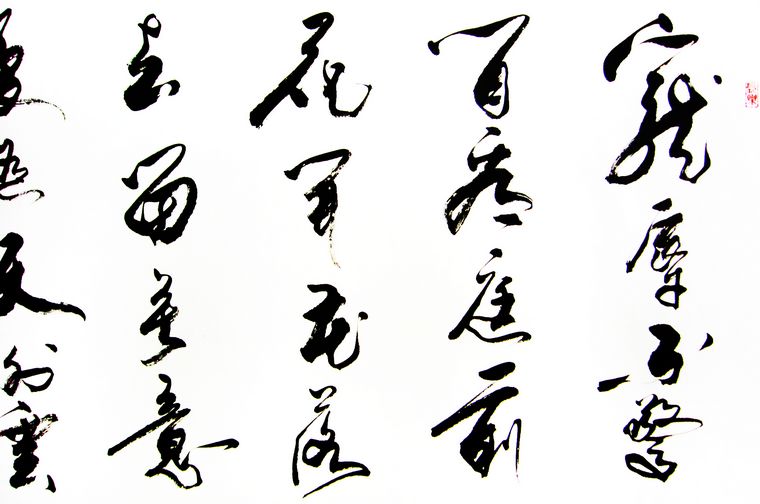 寵辱不驚
閒看庭前
花開花落
去留無意
漫隨天外雲